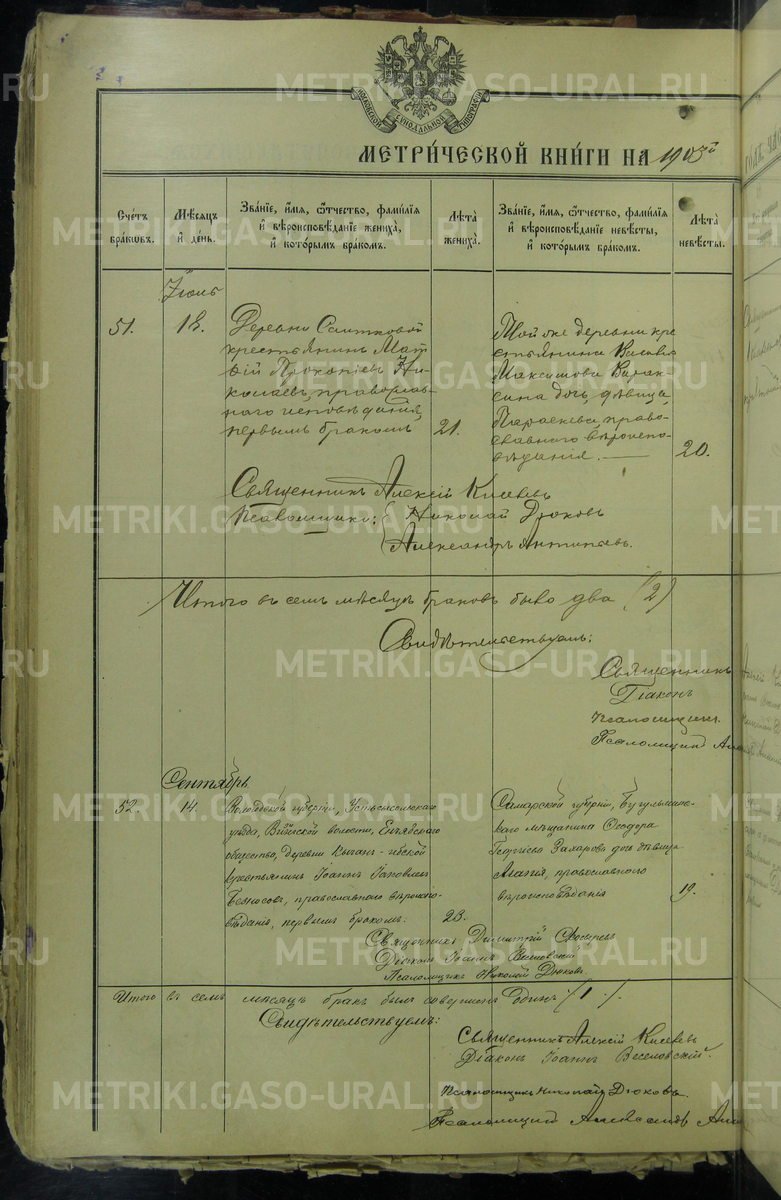 МОСКОВСКОЙ СУНОДАЛЬНОЙ ТИПОГРАФІИ
МЕТРИ́ЧЕСКОЙ КНИ́ГИ НА 1903й
Сче́тъ бра́кѡвъ.
Мѣ́сѧцъ и҆ де́нь.
Зва́нїе, и҆́мѧ, ѻ҆́тчество, фами́лїѧ
и҆ вѣроисповѣ́данїе жениха̀,
и҆ кото́рымъ бра́комъ.
Лѣ́та жениха̀.
Зва́нїе, и҆́мѧ, ѻ҆́тчество, фами́лїѧ
и҆ вѣроисповѣ́данїе невѣ́сты,
и҆ кото́рымъ бра́комъ.
Лѣ́та невѣ́сты.
Іюль
51.
18.
Деревни
крестьянинъ Мат
ѳій Прокопіевъ Ни
колаевъ, православ
наго исповѣданія,
первымъ бракомъ
21.
Той же деревни кре
стьянина
Максимова
дочь, дѣвица
Параскева, право-
славнаго вѣроиспо-
вѣданія.
20.
Священникъ Алексій Киселевъ
Псаломщики: Николай Дюковъ
Александръ
Итого въ семъ мѣсяцѣ браковъ было два (2)
Свидѣтельствуемъ:
Священникъ
Діаконъ
Псаломщикъ
Псаломщикъ
Сентябрь
52.
14.
Вологодской губерніи, Устьсысольскаго
уѣзда, волости,
общества, деревни
крестьянинъ Іоаннъ Іаковлевъ
православнаго вѣроиспо-
вѣданія, первымъ бракомъ.
23.
Самарской губерніи, Бугульмин-
скаго мѣщанина Ѳеодора
Георгіева Захарова дочь дѣвица
православнаго
вѣроисповѣданія
19.
Священникъ Димитрій
Діаконъ Іоаннъ Веселовскій
Псаломщикъ Николай Дюковъ
Итого въ семъ мѣсяцѣ бракъ былъ совершенъ одинъ /1/.
Свидѣтельствуемъ:
Священникъ Алексій Киселевъ
Діаконъ Іоаннъ Веселовскій.
Псаломщикъ Николай Дюковъ
Псаломщикъ Александръ
METRIKI.GASO-URAL.RU